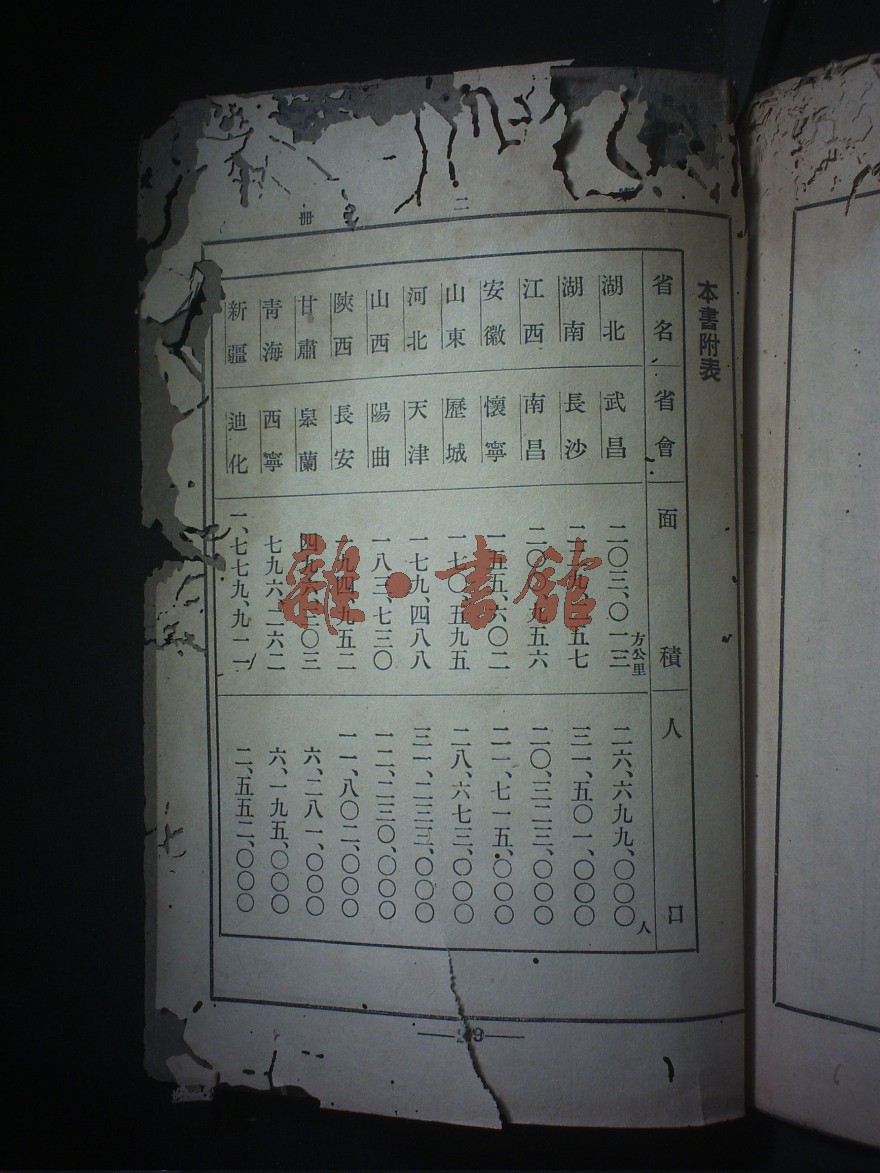 二
冊
本書附表
省名 省會 面積 人口
湖北 武昌 二〇三、〇一三方公里 二六、六九九、〇〇〇人
湖南 長沙 三一、五〇一、〇〇〇
江西 南昌 二〇、三二三、〇〇〇
安徽 懷寧 二一、七一五、〇〇〇
山東 歷城 二八、六七三、〇〇〇
河北 天津 一七九、四八八 三一、二三三、〇〇〇
山西 陽曲 一八三、七三〇 一二、二三〇、〇〇〇
陝西 長安 一一、八〇二、〇〇〇
甘肅 皋蘭 六、二八一、〇〇〇
青海 西寧 七九六、二六二 六、一九五、〇〇〇
新疆 迪化 一、七七九、九一一 二、五五二、〇〇〇
雜·書館